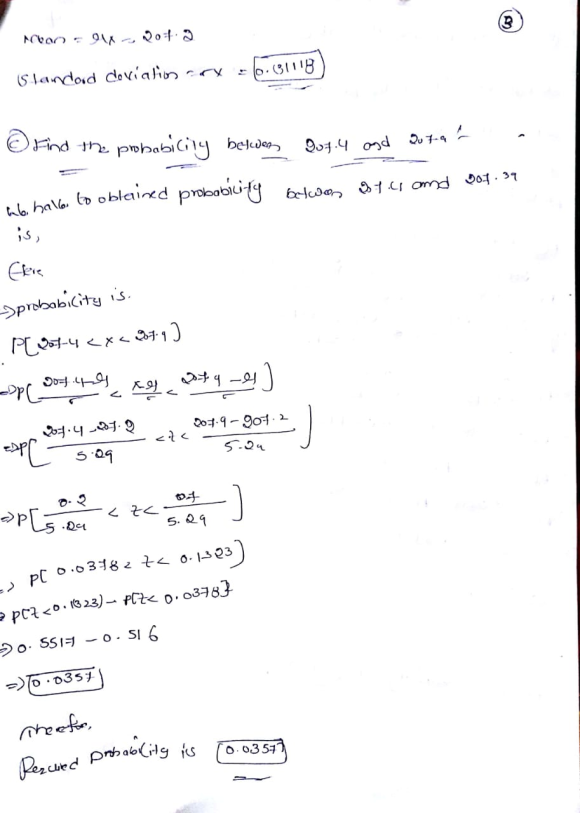 3
Mean = μx = 207.2
Standard deviation = σx = 0.13118
(c) Find the probability between 207.4 and 207.9 :-
We have to obtained probability between 207.4 and 207.39
is,
Here
⇒ probability is.
P[207.4 < x < 207.9]
⇒ P[ (207.4 - μ)/σ < (x-μ)/σ < (207.9 - μ)/σ ]
⇒ P[ (207.4 - 207.2)/5.29 < z < (207.9 - 207.2)/5.29 ]
⇒ P[ 0.2/5.29 < z < 0.7/5.29 ]
⇒ P[ 0.0378 < z < 0.1323)
⇒ P[z < 0.1323) - P[z < 0.0378}
⇒ 0.5517 - 0.516
⇒ 0.0357
Therefor,
Required probability is 0.0357